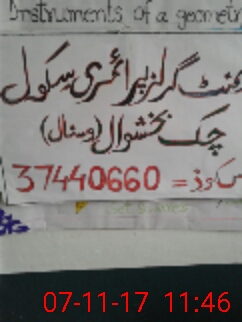 Instruments of a geometry
گرلز پرائمری سکول
چک بخشوال (وسنال)
کوڈ = 37440660
07-11-17 11:46